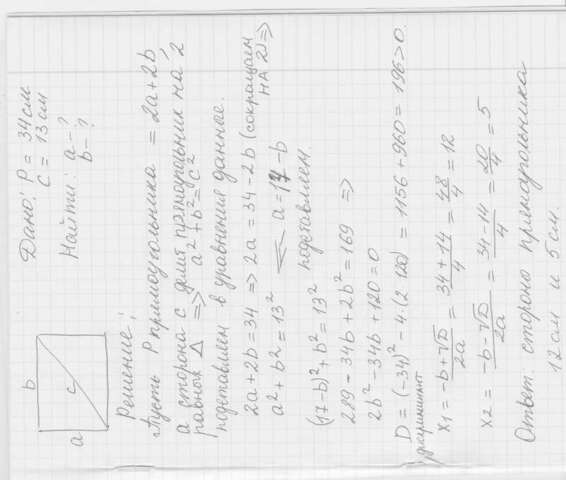 Дано: P = 34 см
c = 13 см
Найти: a - ?
b - ?
b
c
a
Решение:
Пусть P прямоугольника = 2a + 2b
а сторона c делит прямоугольник на 2
равных Δ => a² + b² = c²
подставляем в уравнения данные.
2a + 2b = 34 => 2a = 34 - 2b (сокращаем
НА 2) =>
a² + b² = 13² a = 17 - b
(17 - b)² + b² = 13² подставляем.
289 - 34b + 2b² = 169 =>
2b² - 34b + 120 = 0
D = (-34)² - 4·(2·120) = 1156 + 960 = 196 > 0.
дискриминант
x1 = -b + √D / 2a = 34 + 14 / 4 = 48 / 4 = 12
x2 = -b - √D / 2a = 34 - 14 / 4 = 20 / 4 = 5
Ответ: стороно прямоугольника
12 см и 5 см.